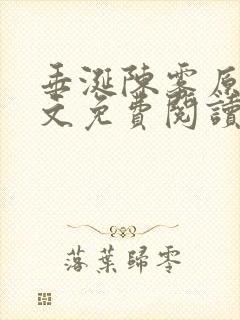 垂涎陳雾原
文免費閱讀
落葉歸零